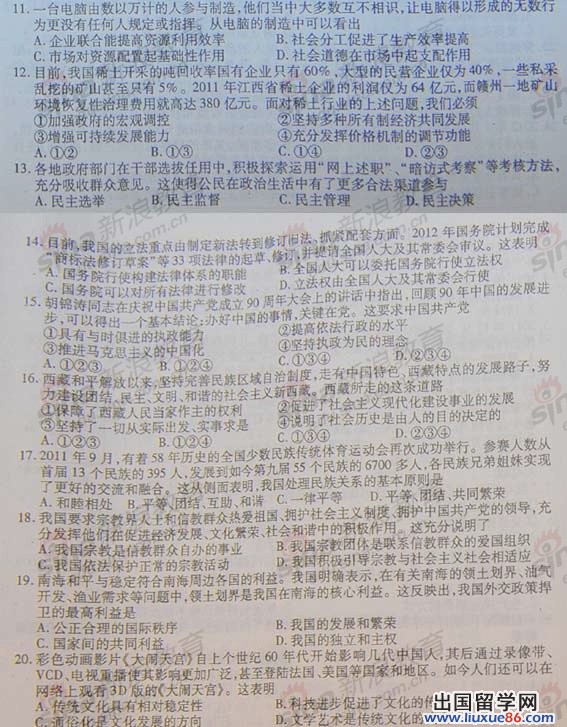 11. 一台电脑由数以万计的人参与制造,他们当中大多数互不相识,让电脑得以形成的无数行
为更没有任何人规定或指挥。从电脑的制造中可以看出
A. 企业联合能提高资源利用效率 B. 社会分工促进了生产效率提高
C. 市场对资源配置起基础性作用 D. 社会道德在市场中起支配作用
12. 目前,我国稀土开采的吨回收率国有企业只有60%、大型的民营企业仅为40%,一些私采
乱挖的矿山甚至只有5%。2011年江西省稀土企业的利润仅为64亿元,而赣州一地矿山
环境恢复性治理费用就高达380亿元。面对稀土行业的上述问题,我们必须
①加强政府的宏观调控 ②坚持多种所有制经济共同发展
③增强可持续发展能力 ④充分发挥价格机制的调节功能
A. ①② B. ①③ C. ②④ D. ③④
13. 各地政府部门在干部选拔任用中,积极探索运用“网上述职”、“暗访式考察”等考核方法,
充分吸收群众意见。这使得公民在政治生活中有了更多合法渠道参与
A. 民主选举 B. 民主监督 C. 民主管理 D. 民主决策
14. 目前,我国的立法重点由制定新法转到修订旧法、抓紧配套方面。2012年国务院计划完成
“商标法修订草案”等33项法律的起草、修订,并提请全国人大及其常委会审议。这表明
A. 国务院行使构建法律体系的职能 B. 全国人大可以委托国务院行使立法权
C. 国务院可以对所有法律进行修改 D. 立法权由全国人大及其常委会行使
15. 胡锦涛同志在庆祝中国共产党成立90周年大会上的讲话中指出,回顾90年中国的发展进
步,可以得出一个基本结论:办好中国的事情,关键在党。这要求中国共产党
①具有与时俱进的执政能力 ②提高依法行政的水平
③推进马克思主义的中国化 ④坚持执政为民的理念
A. ①②③ B. ①②④ C. ①③④ D. ②③④
16. 西藏和平解放以来,坚持完善民族区域自治制度,走有中国特色、西藏特点的发展路子,努
力建设团结、民主、文明、和谐的社会主义新西藏。西藏所走的这条道路
①保障了西藏人民当家作主的权利 ②促进了社会主义现代化建设事业的发展
③坚持了一切从实际出发、实事求是 ④说明社会历史是由人的目的决定的
A. ①②③ B. ①②④ C. ①③④ D. ②③④
17. 2011年9月,有着58年历史的全国少数民族传统体育运动会再次成功举行。参赛人数从
首届13个民族的395人,发展到如今第九届55个民族的6700多人,各民族兄弟姐妹实现
了更好的交流和融合。这从侧面表明,我国处理民族关系的基本原则是
A. 和睦相处 B. 平等、团结、互助、和谐 C. 一律平等 D. 平等、团结、共同繁荣
18. 我国要求宗教界人士和信教群众热爱祖国、拥护社会主义制度、拥护中国共产党的领导,充
分发挥他们在促进经济发展、文化繁荣、社会和谐中的积极作用。这充分说明了
A. 我国宗教是信教群众自办的事业 B. 我国宗教团体是联系信教群众的爱国组织
C. 我国依法保护正常的宗教活动 D. 我国积极引导宗教与社会主义社会相适应
19. 南海和平与稳定符合南海周边各国的利益。我国明确表示,在有关南海的领土划界、油气
开发、渔业需求等问题中,领土划界是我国在南海的核心利益。这反映出,我国外交政策捍
卫的最高利益是
A. 公正合理的国际秩序 B. 我国的发展和繁荣
C. 国家间的共同利益 D. 我国的独立和主权
20. 彩色动画影片《大闹天宫》自上个世纪60年代开始影响几代中国人,其后通过录像带、
VCD、电视重播使其影响更加广泛,甚至登陆法国、美国等国家和地区。如今人们还可以在
网络上观看3D版的《大闹天宫》。这表明
A. 传统文化具有相对稳定性 B. 科技进步促进了文化的传
C. 通俗化是文化发展的方向 D. 文学艺术是传统文化的
新浪教育
出国留学网
www.liuxue86.com